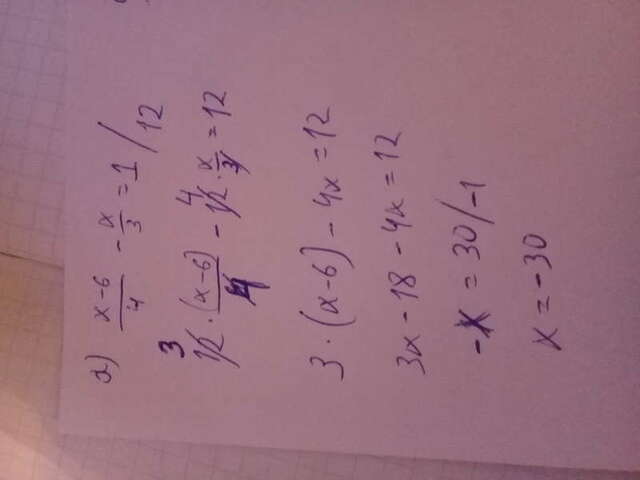 a) x-6/4 - x/3 = 1 / 12
3 4
12 · (x-6)/4 - 12 · x/3 = 12
3 · (x-6) - 4x = 12
3x - 18 - 4x = 12
-x = 30 / -1
x = -30